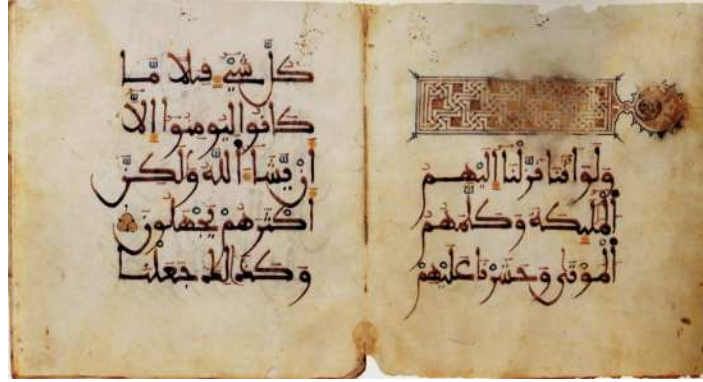 وَلَوَ اَنَّنَا نَزَّلْنَا إِلَيْهِمُ
اُلْمَلَٰٓئِكَةَ وَكَلَّمَهُمُ
اُلْمَوْتَىٰ وَحَشَرْنَا عَلَيْهِمْ
كُلَّ شَيْءٍ قِبَلًا مَّا
كَانُوا لِيُومِنُوا إِلَّا
أَنْ يَّشَاءَ اَللَّهُ وَلَٰكِنَّ
أَكْثَرَهُمْ يَجْهَلُونَ
وَكَذَٰلِكَ جَعَلْنَا